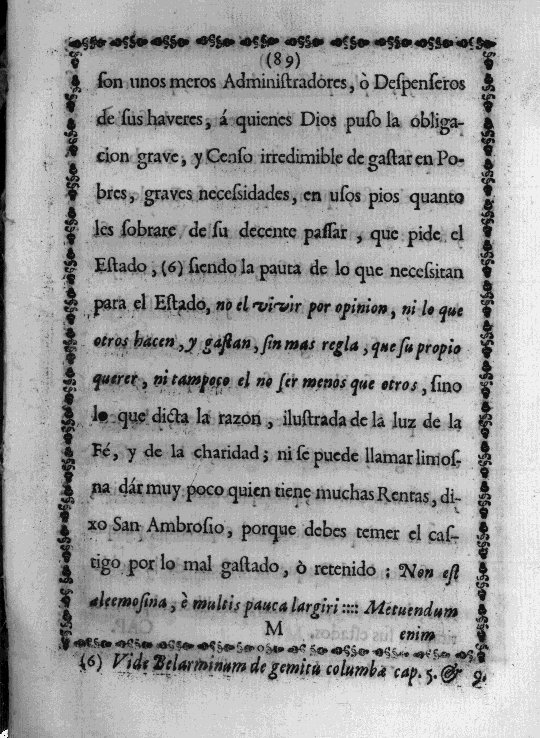 (89)
ſon unos meros Adminiſtradores, ò Deſpenſeros
de ſus haveres, á quienes Dios puſo la obliga-
cion grave, y Cenſo irredimible de gaſtar en Po-
bres, graves neceſsidades, en uſos pios quanto
les ſobrare de ſu decente paſſar, que pide el
Eſtado, (6) ſiendo la pauta de lo que neceſsitan
para el Eſtado, no el vivir por opinion, ni lo que
otros hacen, y gaſtan, ſin mas regla, que ſu propio
querer, ni tampoco el no ſer menos que otros, ſino
lo que dicta la razon, iluſtrada de la luz de la
Fé, y de la charidad; ni ſe puede llamar limoſ-
na dár muy poco quien tiene muchas Rentas, di-
xo San Ambroſio, porque debes temer el caſ-
tigo por lo mal gaſtado, ò retenido: Non eſt
aleemoſina, è multis pauca largiri :::: Metuendum
M enim
(6) Vide Belarminum de gemitu columbæ cap. 5. & 9.